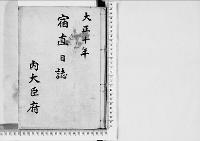 大正十年
宿直日誌
内大臣府